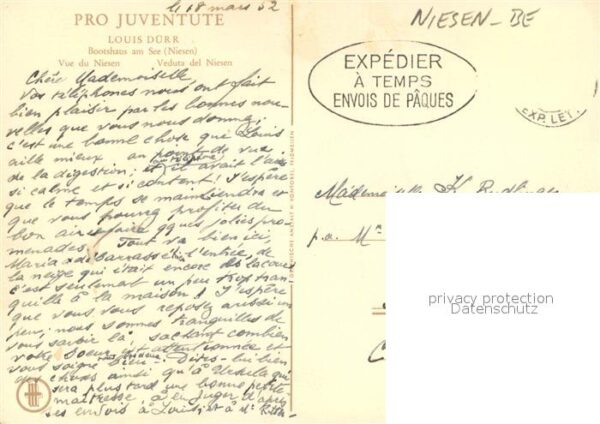 le 18 mars 52
PRO JUVENTUTE
LOUIS DÜRR
Bootshaus am See (Niesen)
Vue du Niesen Veduta del Niesen
Chère Mademoiselle,
Vos téléphones nous ont fait
bien plaisir par les bonnes nou-
velles que vous nous donnez;
c'est une bonne chose que Louis
aille mieux au point de vue
de la digestion; et il avait l'air
si calme et si content! J'espère
que le temps se maintiendra et
que vous pourrez profiter du
bon air et faire qques jolies pro-
menades. Tout va bien ici,
Maria a débarrassé l'entrée, de
la neige qui était encore
c'est seulement un peu trop tran-
quille à la maison! J'espère
que vous vous reposez aussi un
peu; nous sommes tranquilles de
vous savoir là sachant combien
votre soeur est attentionnée et
vous soigne bien. Dites-lui bien
des choses ainsi qu'à Ursula qui
sera plus tard une bonne petite
maîtresse, à en juger d'après
ses envois à Louis et à
NIESEN-BE
EXPÉDIER
À TEMPS
ENVOIS DE PÂQUES
EXP. LET.
Mademoiselle K.
p.a. M
privacy protection
Datenschutz